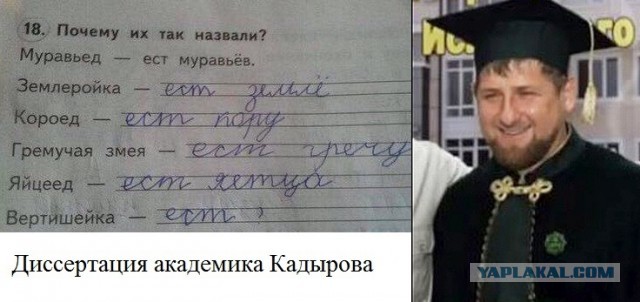 18. Почему их так назвали?
Муравьед — ест муравьёв.
Землеройка — ест землё
Короед — ест пору
Гремучая змея — ест гречу
Яйцеед — ест яетца
Вертишейка — ест ?
Диссертация академика Кадырова
YAPLAKAL.COM